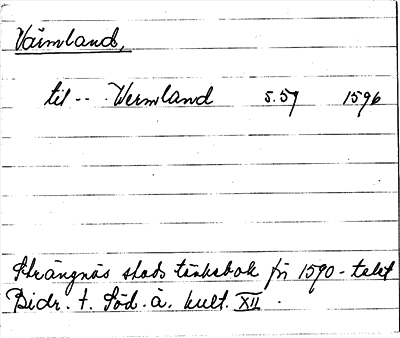 Värmland,
til -- . Wermland s. 59 1596
Strängnäs stads tänkebok fr 1590-talet
Bidr. t. Söd. ä. kult. XII.